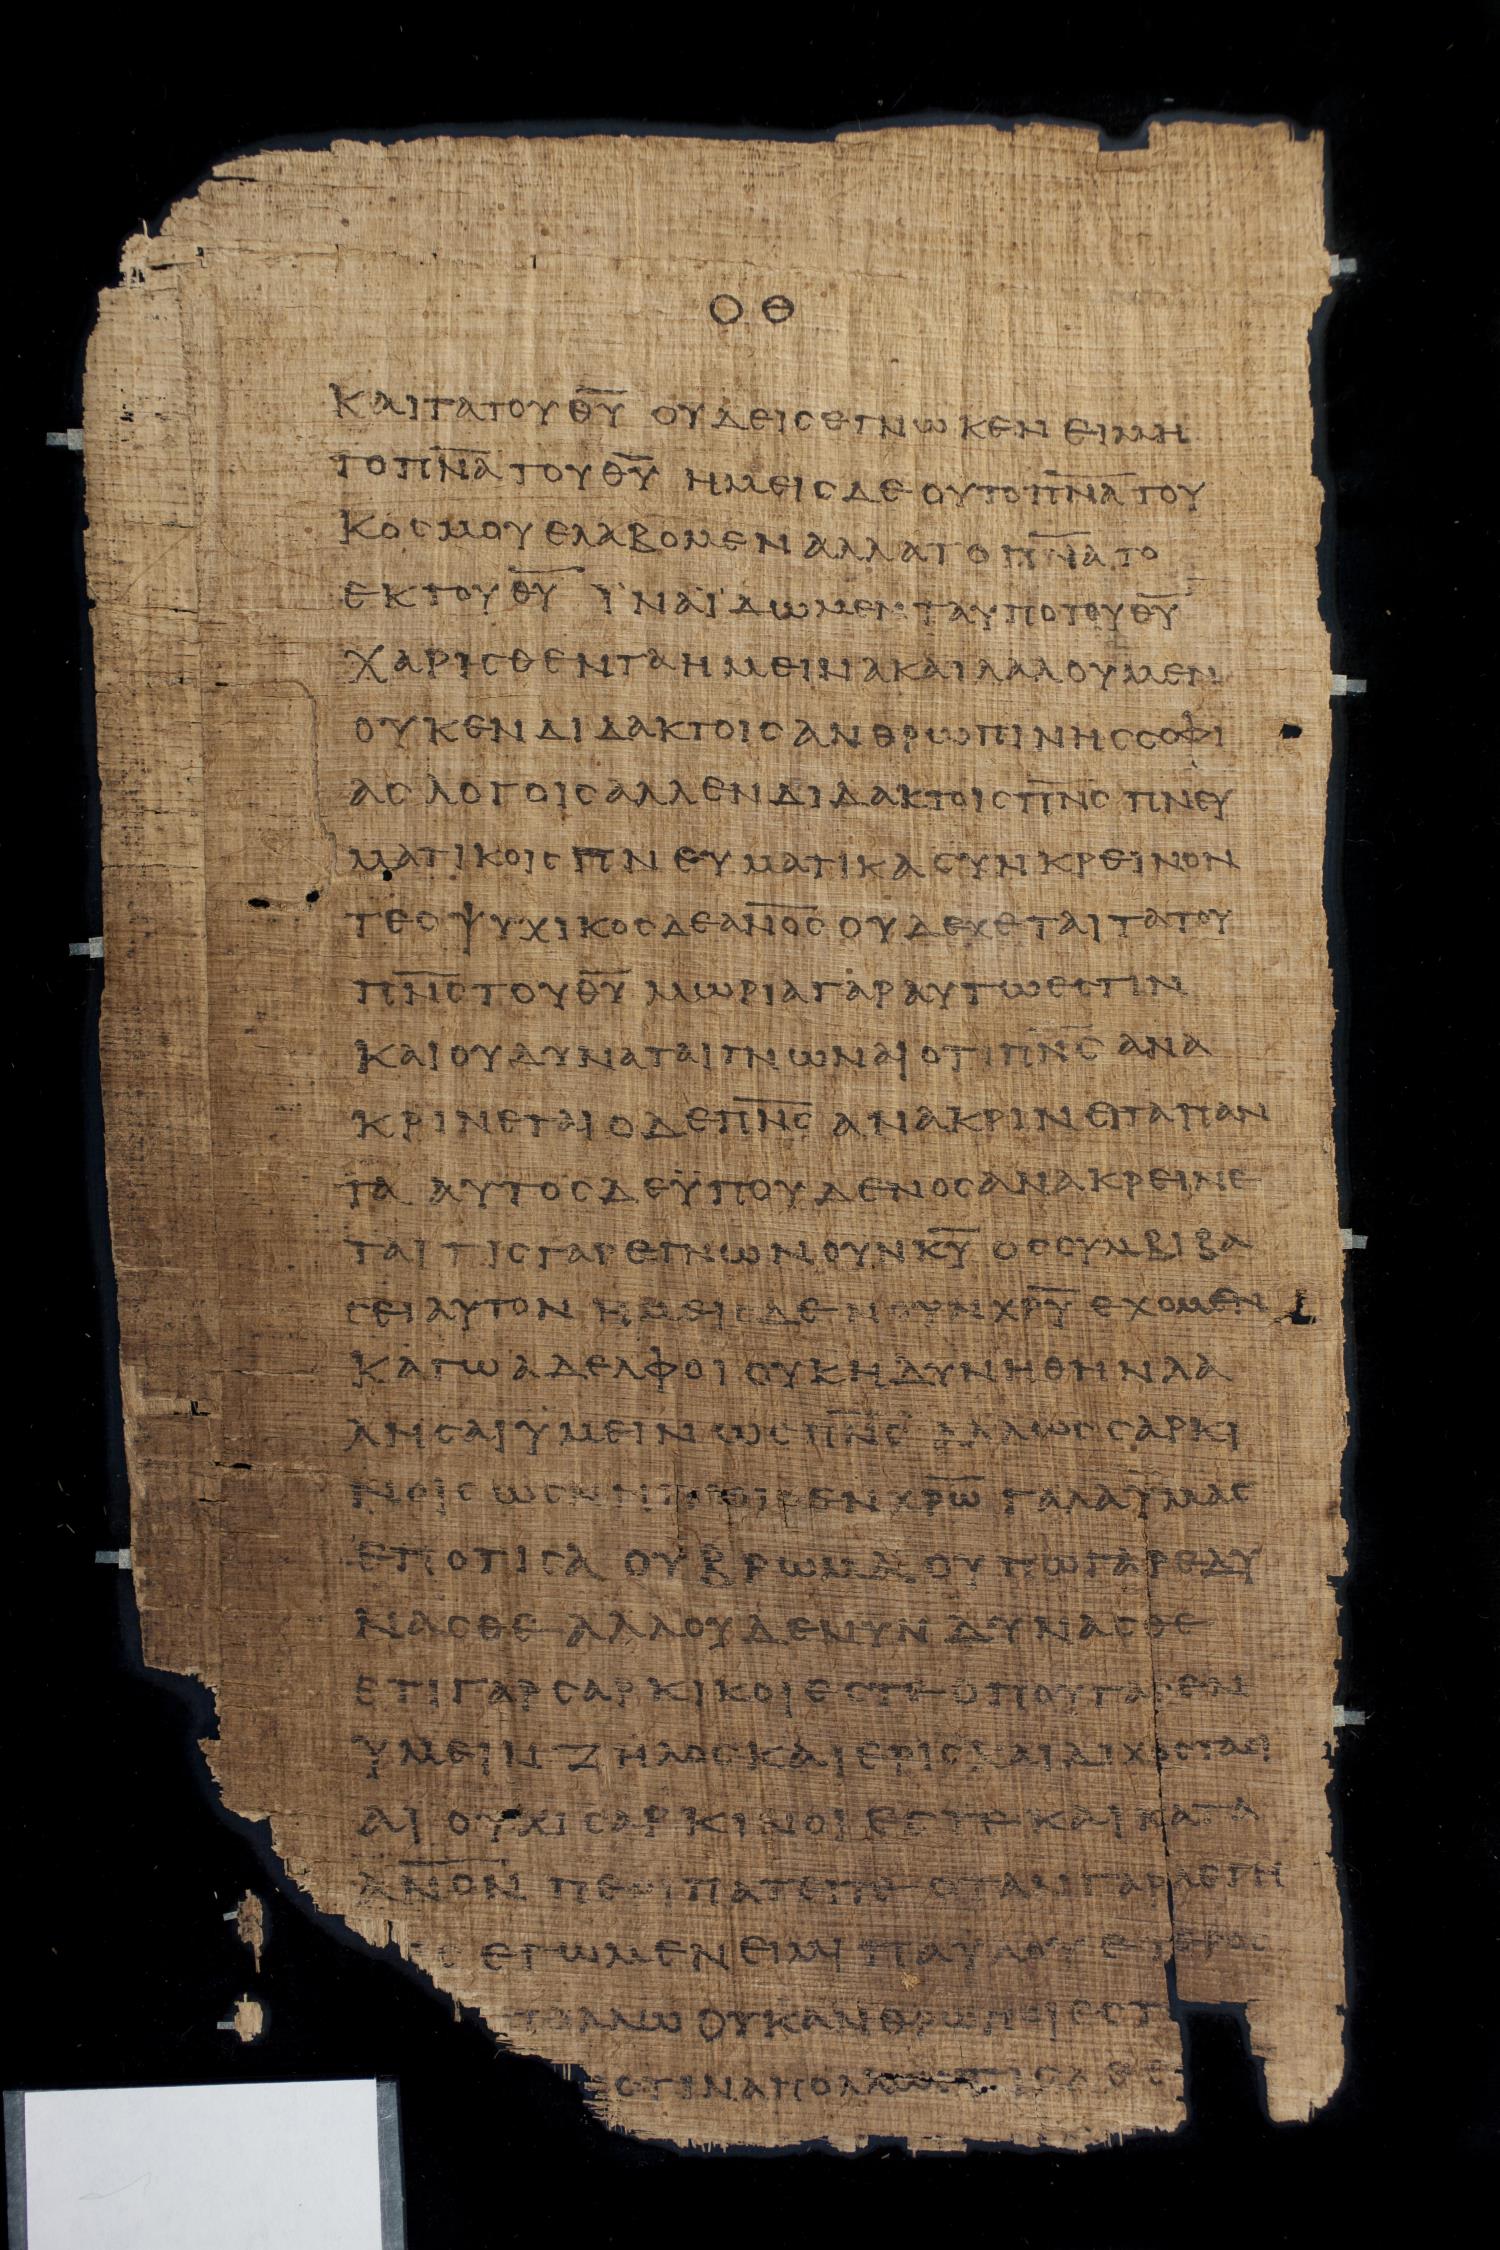 ΟΘ
ΚΑΙ ΤΑ ΤΟΥ Θ̅Υ̅ ΟΥΔΕΙΣ ΕΓΝΩΚΕΝ ΕΙ ΜΗ
ΤΟ Π̅Ν̅Α̅ ΤΟΥ Θ̅Υ̅ ΗΜΕΙΣ ΔΕ ΟΥ ΤΟ Π̅Ν̅Α̅ ΤΟΥ
ΚΟΣΜΟΥ ΕΛΑΒΟΜΕΝ ΑΛΛΑ ΤΟ Π̅Ν̅Α̅ ΤΟ
ΕΚ ΤΟΥ Θ̅Υ̅ ΪΝΑ ΪΔΩΜΕΝ ΤΑ ΥΠΟ ΤΟΥ Θ̅Υ̅
ΧΑΡΙΣΘΕΝΤΑ ΗΜΕΙΝ Α ΚΑΙ ΛΑΛΟΥΜΕΝ
ΟΥΚ ΕΝ ΔΙΔΑΚΤΟΙΣ ΑΝΘΡΩΠΙΝΗΣ ΣΟΦΙ
ΑΣ ΛΟΓΟΙΣ ΑΛΛ ΕΝ ΔΙΔΑΚΤΟΙΣ Π̅Ν̅Σ̅ ΠΝΕΥ
ΜΑΤΙΚΟΙΣ ΠΝΕΥΜΑΤΙΚΑ ΣΥΝΚΡΕΙΝΟΝ
ΤΕΣ ΨΥΧΙΚΟΣ ΔΕ Α̅Ν̅Ο̅Σ̅ ΟΥ ΔΕΧΕΤΑΙ ΤΑ ΤΟΥ
Π̅Ν̅Σ̅ ΤΟΥ Θ̅Υ̅ ΜΩΡΙΑ ΓΑΡ ΑΥΤΩ ΕΣΤΙΝ
ΚΑΙ ΟΥ ΔΥΝΑΤΑΙ ΓΝΩΝΑΙ ΟΤΙ Π̅Ν̅Σ̅ ΑΝΑ
ΚΡΙΝΕΤΑΙ Ο ΔΕ Π̅Ν̅Σ̅ ΑΝΑΚΡΙΝΕΙ ΤΑ ΠΑΝ
ΤΑ ΑΥΤΟΣ ΔΕ ΫΠ ΟΥΔΕΝΟΣ ΑΝΑΚΡΕΙΝΕ
ΤΑΙ ΤΙΣ ΓΑΡ ΕΓΝΩ ΝΟΥΝ Κ̅Υ̅ ΟΣ ΣΥΜΒΙΒΑ
ΣΕΙ ΑΥΤΟΝ ΗΜΕΙΣ ΔΕ ΝΟΥΝ Χ̅Ρ̅Υ̅ ΕΧΟΜΕΝ
ΚΑΓΩ ΑΔΕΛΦΟΙ ΟΥΚ ΗΔΥΝΗΘΗΝ ΛΑ
ΛΗΣΑΙ ΫΜΕΙΝ ΩΣ Π̅Ν̅Σ̅ ΑΛΛ ΩΣ ΣΑΡΚΙ
ΝΟΙΣ ΩΣ ΝΗΠΙΟΙΣ ΕΝ Χ̅Ρ̅Ω̅ ΓΑΛΑ ΫΜΑΣ
ΕΠΟΤΙΣΑ ΟΥ ΒΡΩΜΑ ΟΥΠΩ ΓΑΡ ΕΔΥ
ΝΑΣΘΕ ΑΛΛ ΟΥΔΕ ΝΥΝ ΔΥΝΑΣΘΕ
ΕΤΙ ΓΑΡ ΣΑΡΚΙΚΟΙ ΕΣΤΕ ΟΠΟΥ ΓΑΡ ΕΝ
ΥΜΕΙΝ ΖΗΛΟΣ ΚΑΙ ΕΡΙΣ ΚΑΙ ΔΙΧΟΣΤΑΣΙ
ΑΙ ΟΥΧΙ ΣΑΡΚΙΝΟΙ ΕΣΤΕ ΚΑΙ ΚΑΤΑ
Α̅Ν̅Ο̅Ν̅ ΠΕΡΙΠΑΤΕΙΤΕ ΟΤΑΝ ΓΑΡ ΛΕΓΗ
ΕΓΩ ΜΕΝ ΕΙΜΙ ΠΑΥΛΟΥ ΕΤΕΡΟΣ
ΠΟΛΛΩ ΟΥΚ ΑΝΘΡΩΠΟΙ ΕΣΤ
ΕΣΤΙΝ ΑΠΟΛΛΩΣ